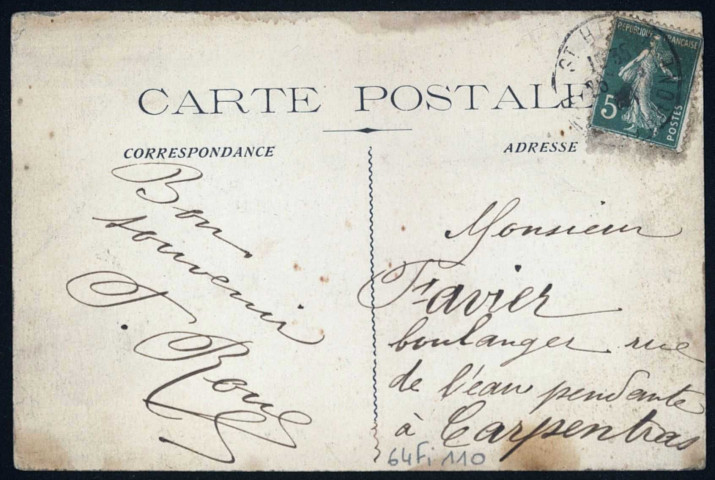 CARTE POSTALE
CORRESPONDANCE
ADRESSE
RÉPUBLIQUE FRANÇAISE
5
POSTES
Bon
souvenir
Monsieur
Favier
boulanger rue
de l'eau pendante
à Carpentras
64Fi 110